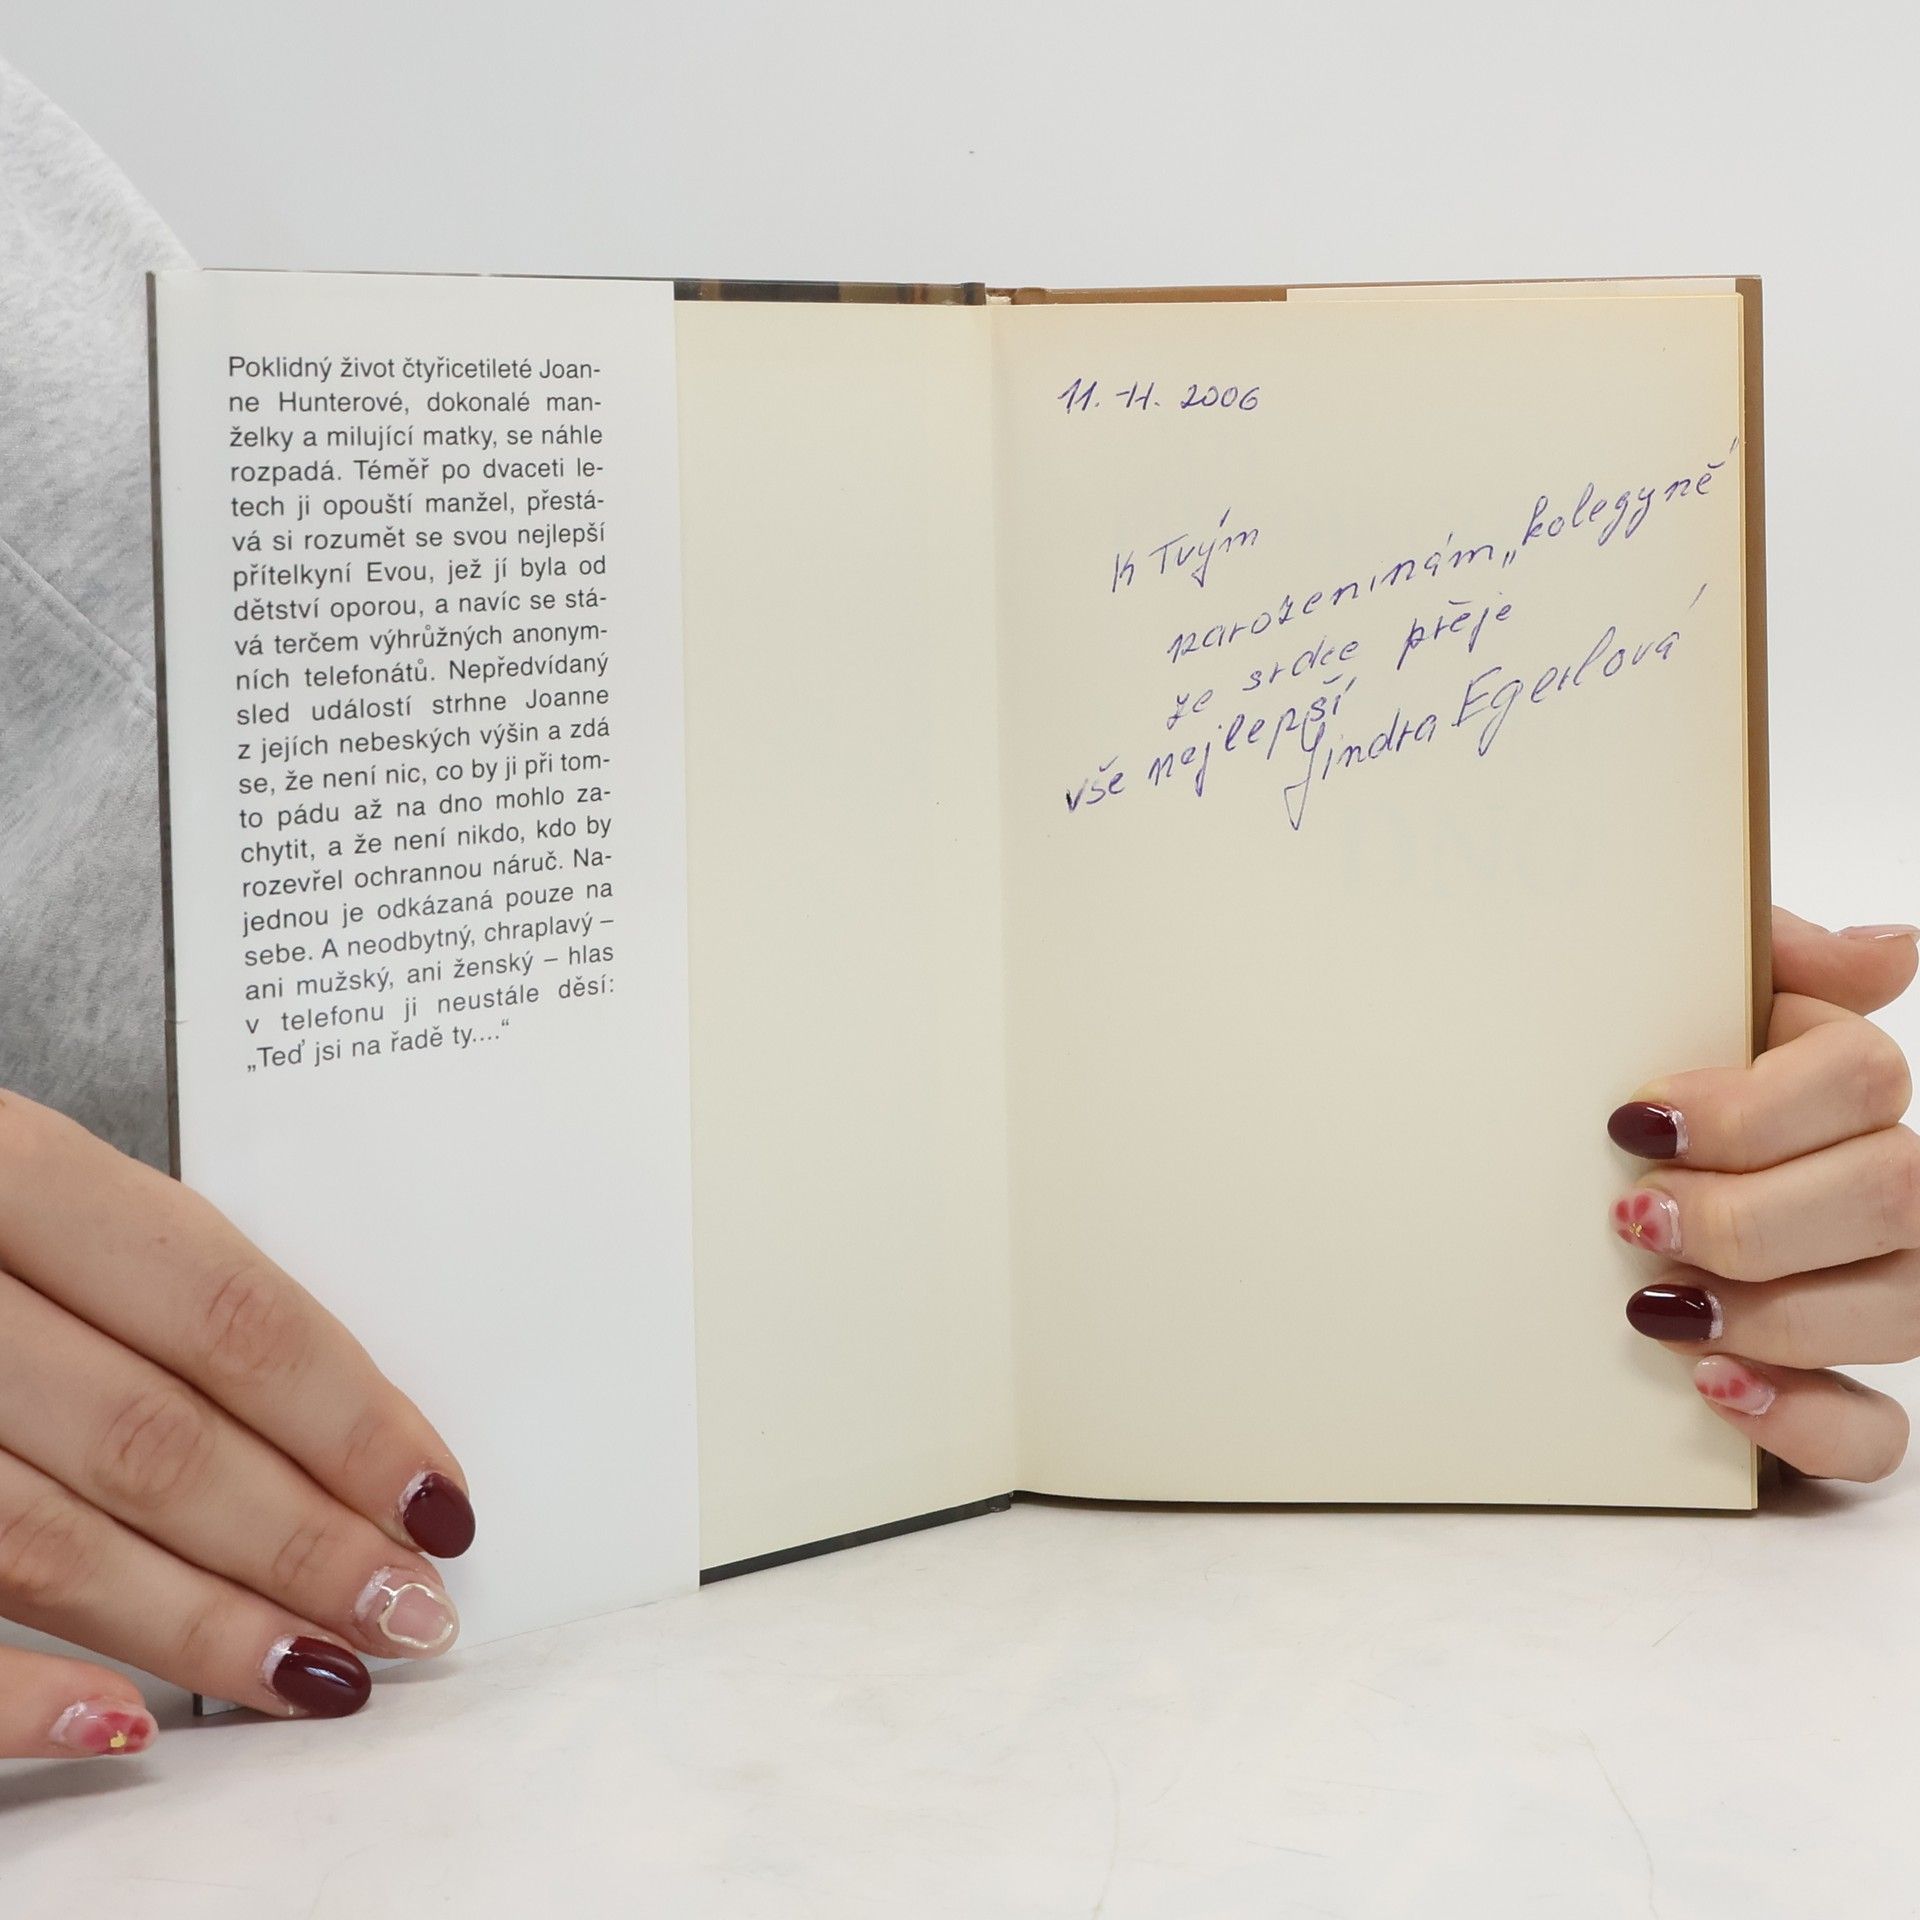 Poklidný život čtyřicetileté Joan-
ne Hunterové, dokonalé man-
želky a milující matky, se náhle
rozpadá. Téměř po dvaceti le-
tech ji opouští manžel, přestá-
vá si rozumět se svou nejlepší
přítelkyní Evou, jež jí byla od
dětství oporou, a navíc se stá-
vá terčem výhrůžných anonym-
ních telefonátů. Nepředvídaný
sled událostí strhne Joanne
z jejích nebeských výšin a zdá
se, že není nic, co by ji při tom-
to pádu až na dno mohlo za-
chytit, a že není nikdo, kdo by
rozevřel ochrannou náruč. Na-
jednou je odkázaná pouze na
sebe. A neodbytný, chraplavý –
ani mužský, ani ženský – hlas
v telefonu ji neustále děsí:
„Teď jsi na řadě ty....“
11. 11. 2006
K Tvým
narozeninám „kolegyně“
ze srdce přeje
vše nejlepší
Jindra Egerlová